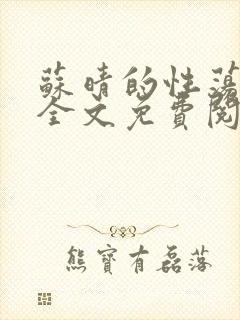 蘇晴的性蕩
全文免費閱
熊寶有磊落